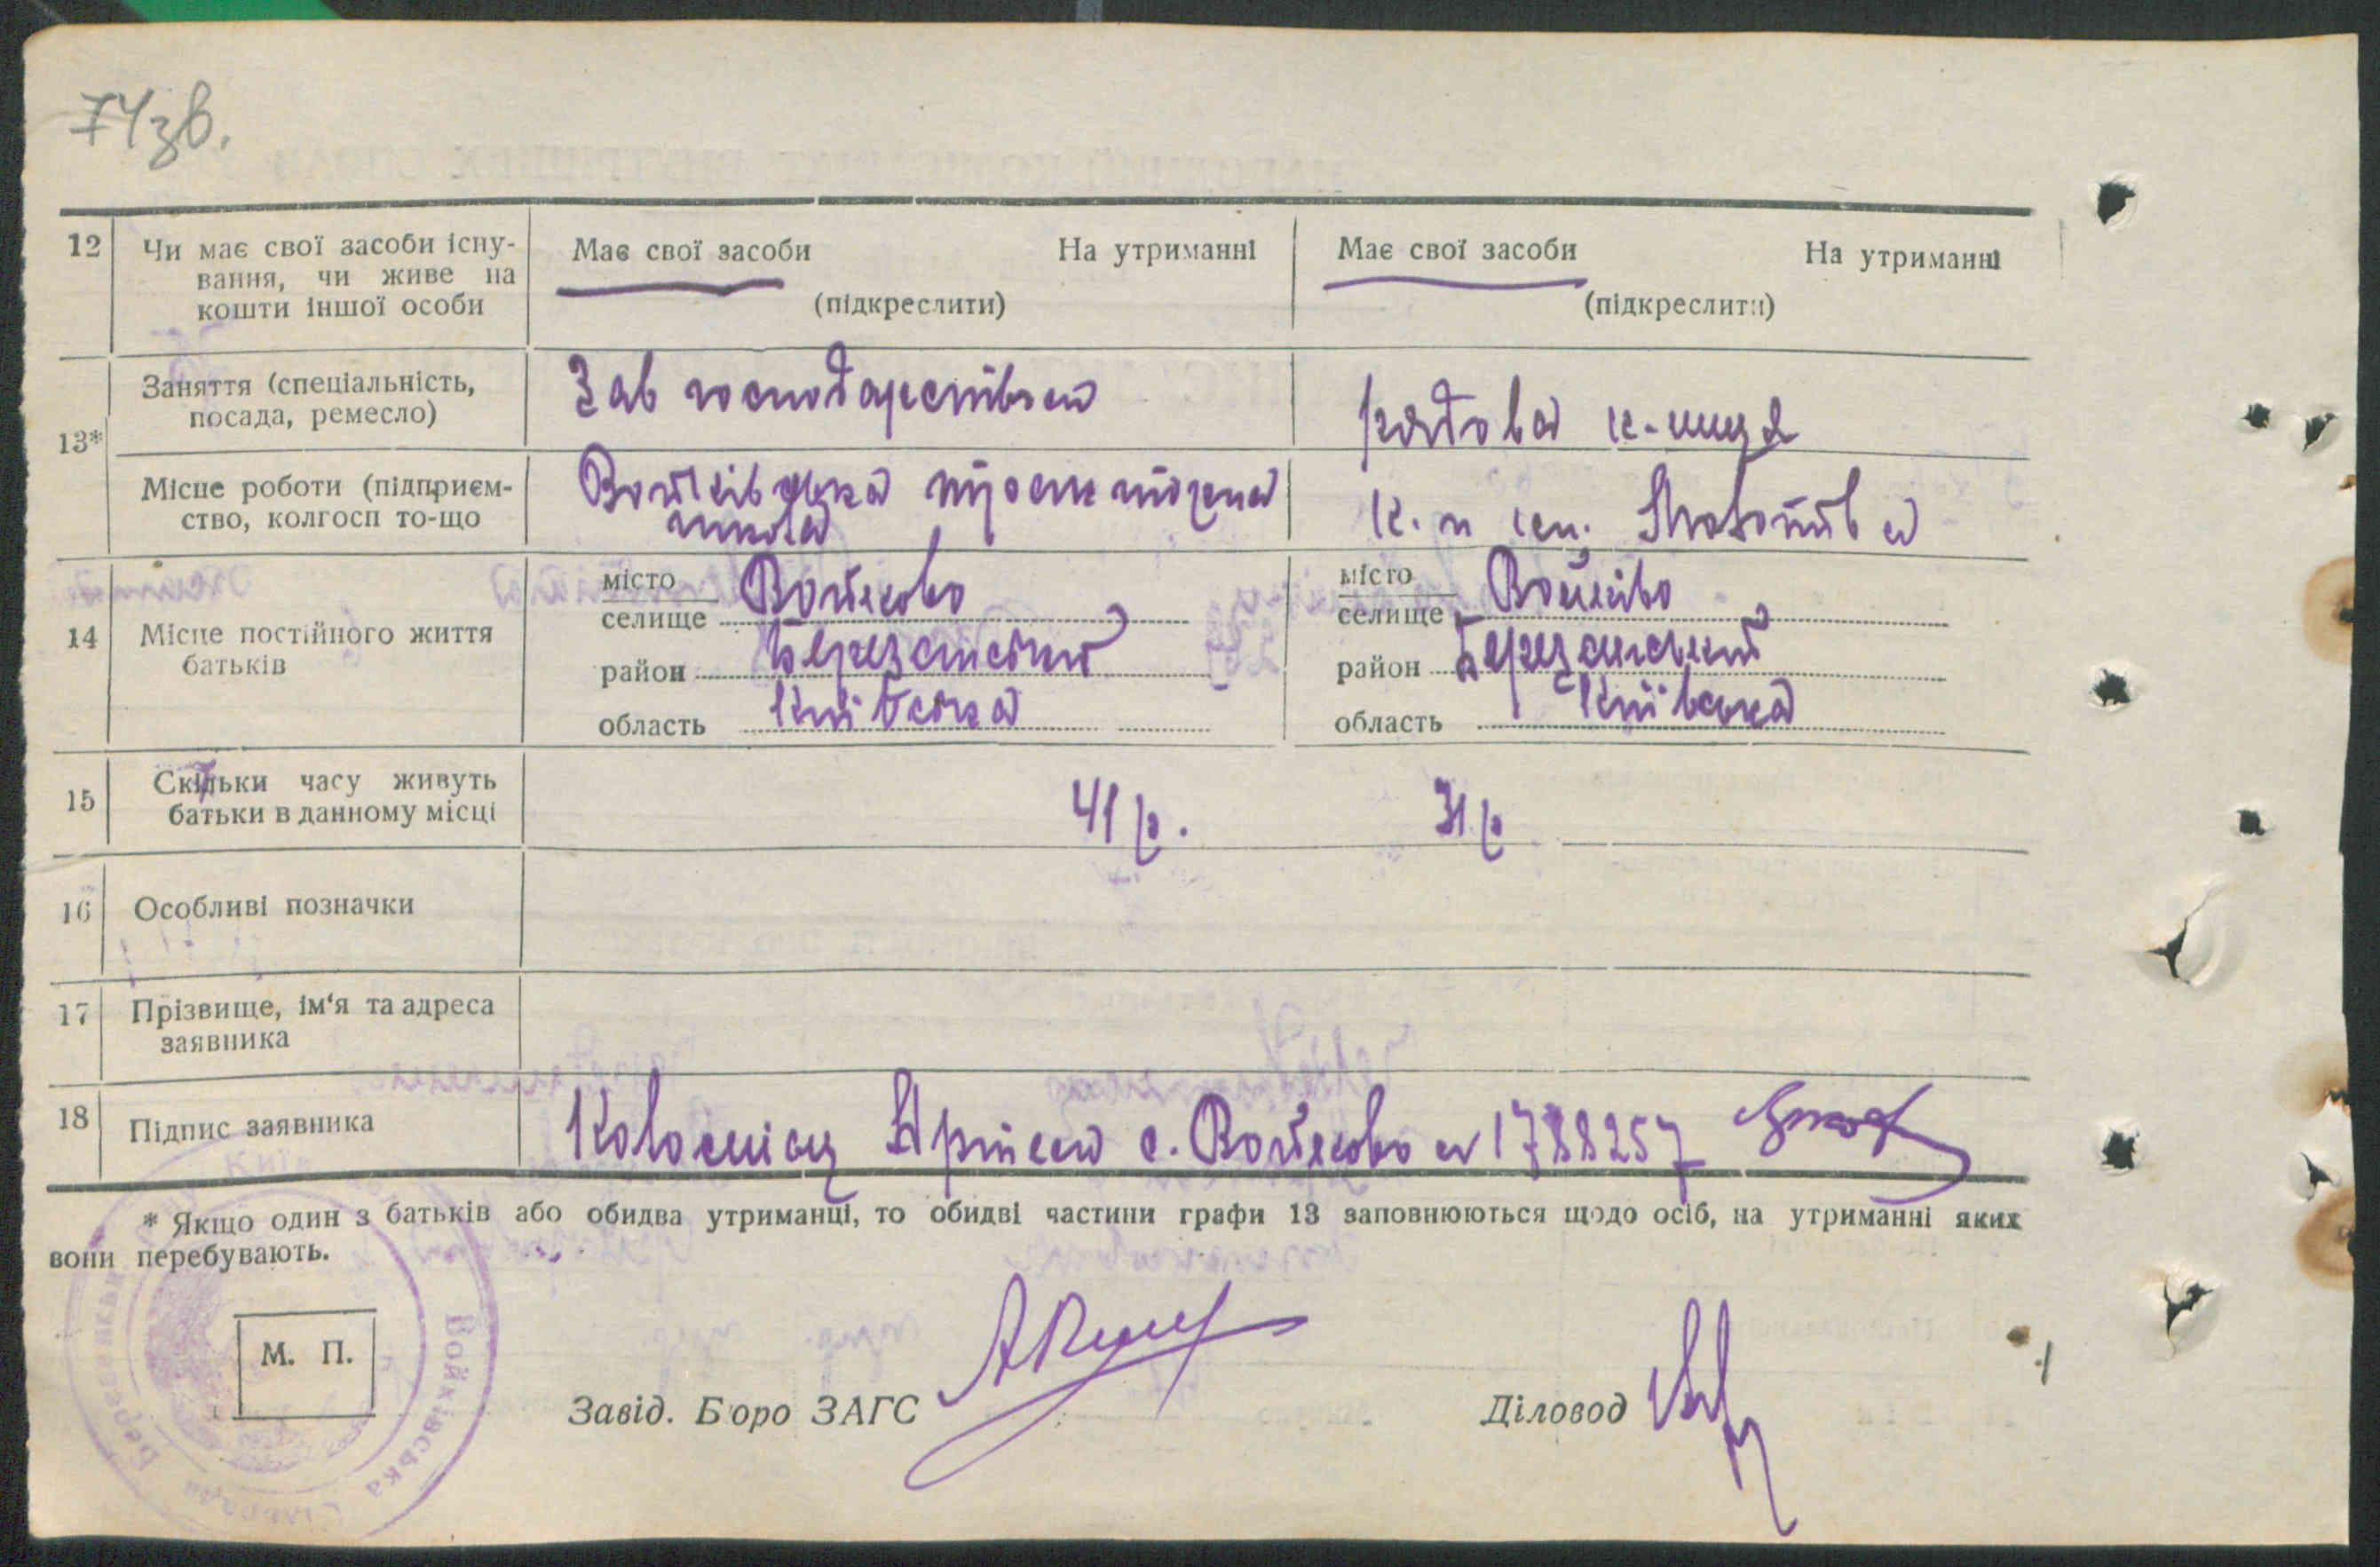 74зв.
12 Чи має свої засоби існу-
вання, чи живе на
кошти іншої особи
Має свої засоби На утриманні
(підкреслити)
Має свої засоби На утриманні
(підкреслити)
13*
Заняття (спеціальність,
посада, ремесло)
Зав господарством
рядова к-ниця
Місце роботи (підприєм-
ство, колгосп то-що
Войківська
школа
к. п ім.
14 Місце постійного життя
батьків
місто
селище Войково
район Березанський
область Київська
місто
селище Войково
район Березанський
область Київська
15 Скільки часу живуть
батьки в данному місці
41 р. 31 р
16 Особливі позначки
17 Прізвище, ім'я та адреса
заявника
18 Підпис заявника
Коломієць с. Войково 1788257
* Якщо один з батьків або обидва утриманці, то обидві частини графи 13 заповнюються щодо осіб, на утриманні яких
вони перебувають.
М. П.
Войківська
Завід. Бюро ЗАГС
Діловод